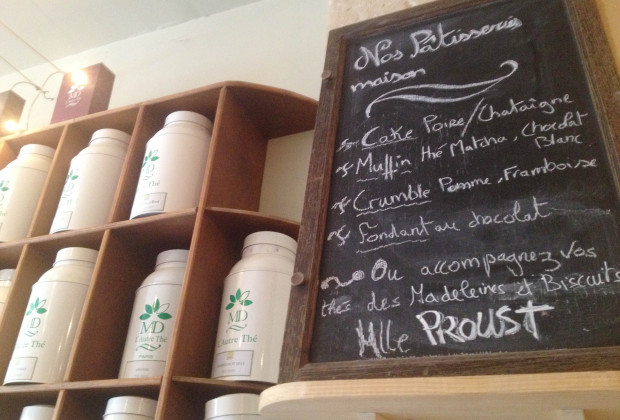 Nos Pâtisseries
maison
Cake Poire/Chataîgne
Muffin thé Matcha, Chocolat
Blanc
Crumble Pomme, Framboise
Fondant au chocolat
Ou accompagnez vos
thés des Madeleines et Biscuits
Mlle PROUST
MD
Thé
MD
MD
L'Autre Thé
MD
L'Autre Thé